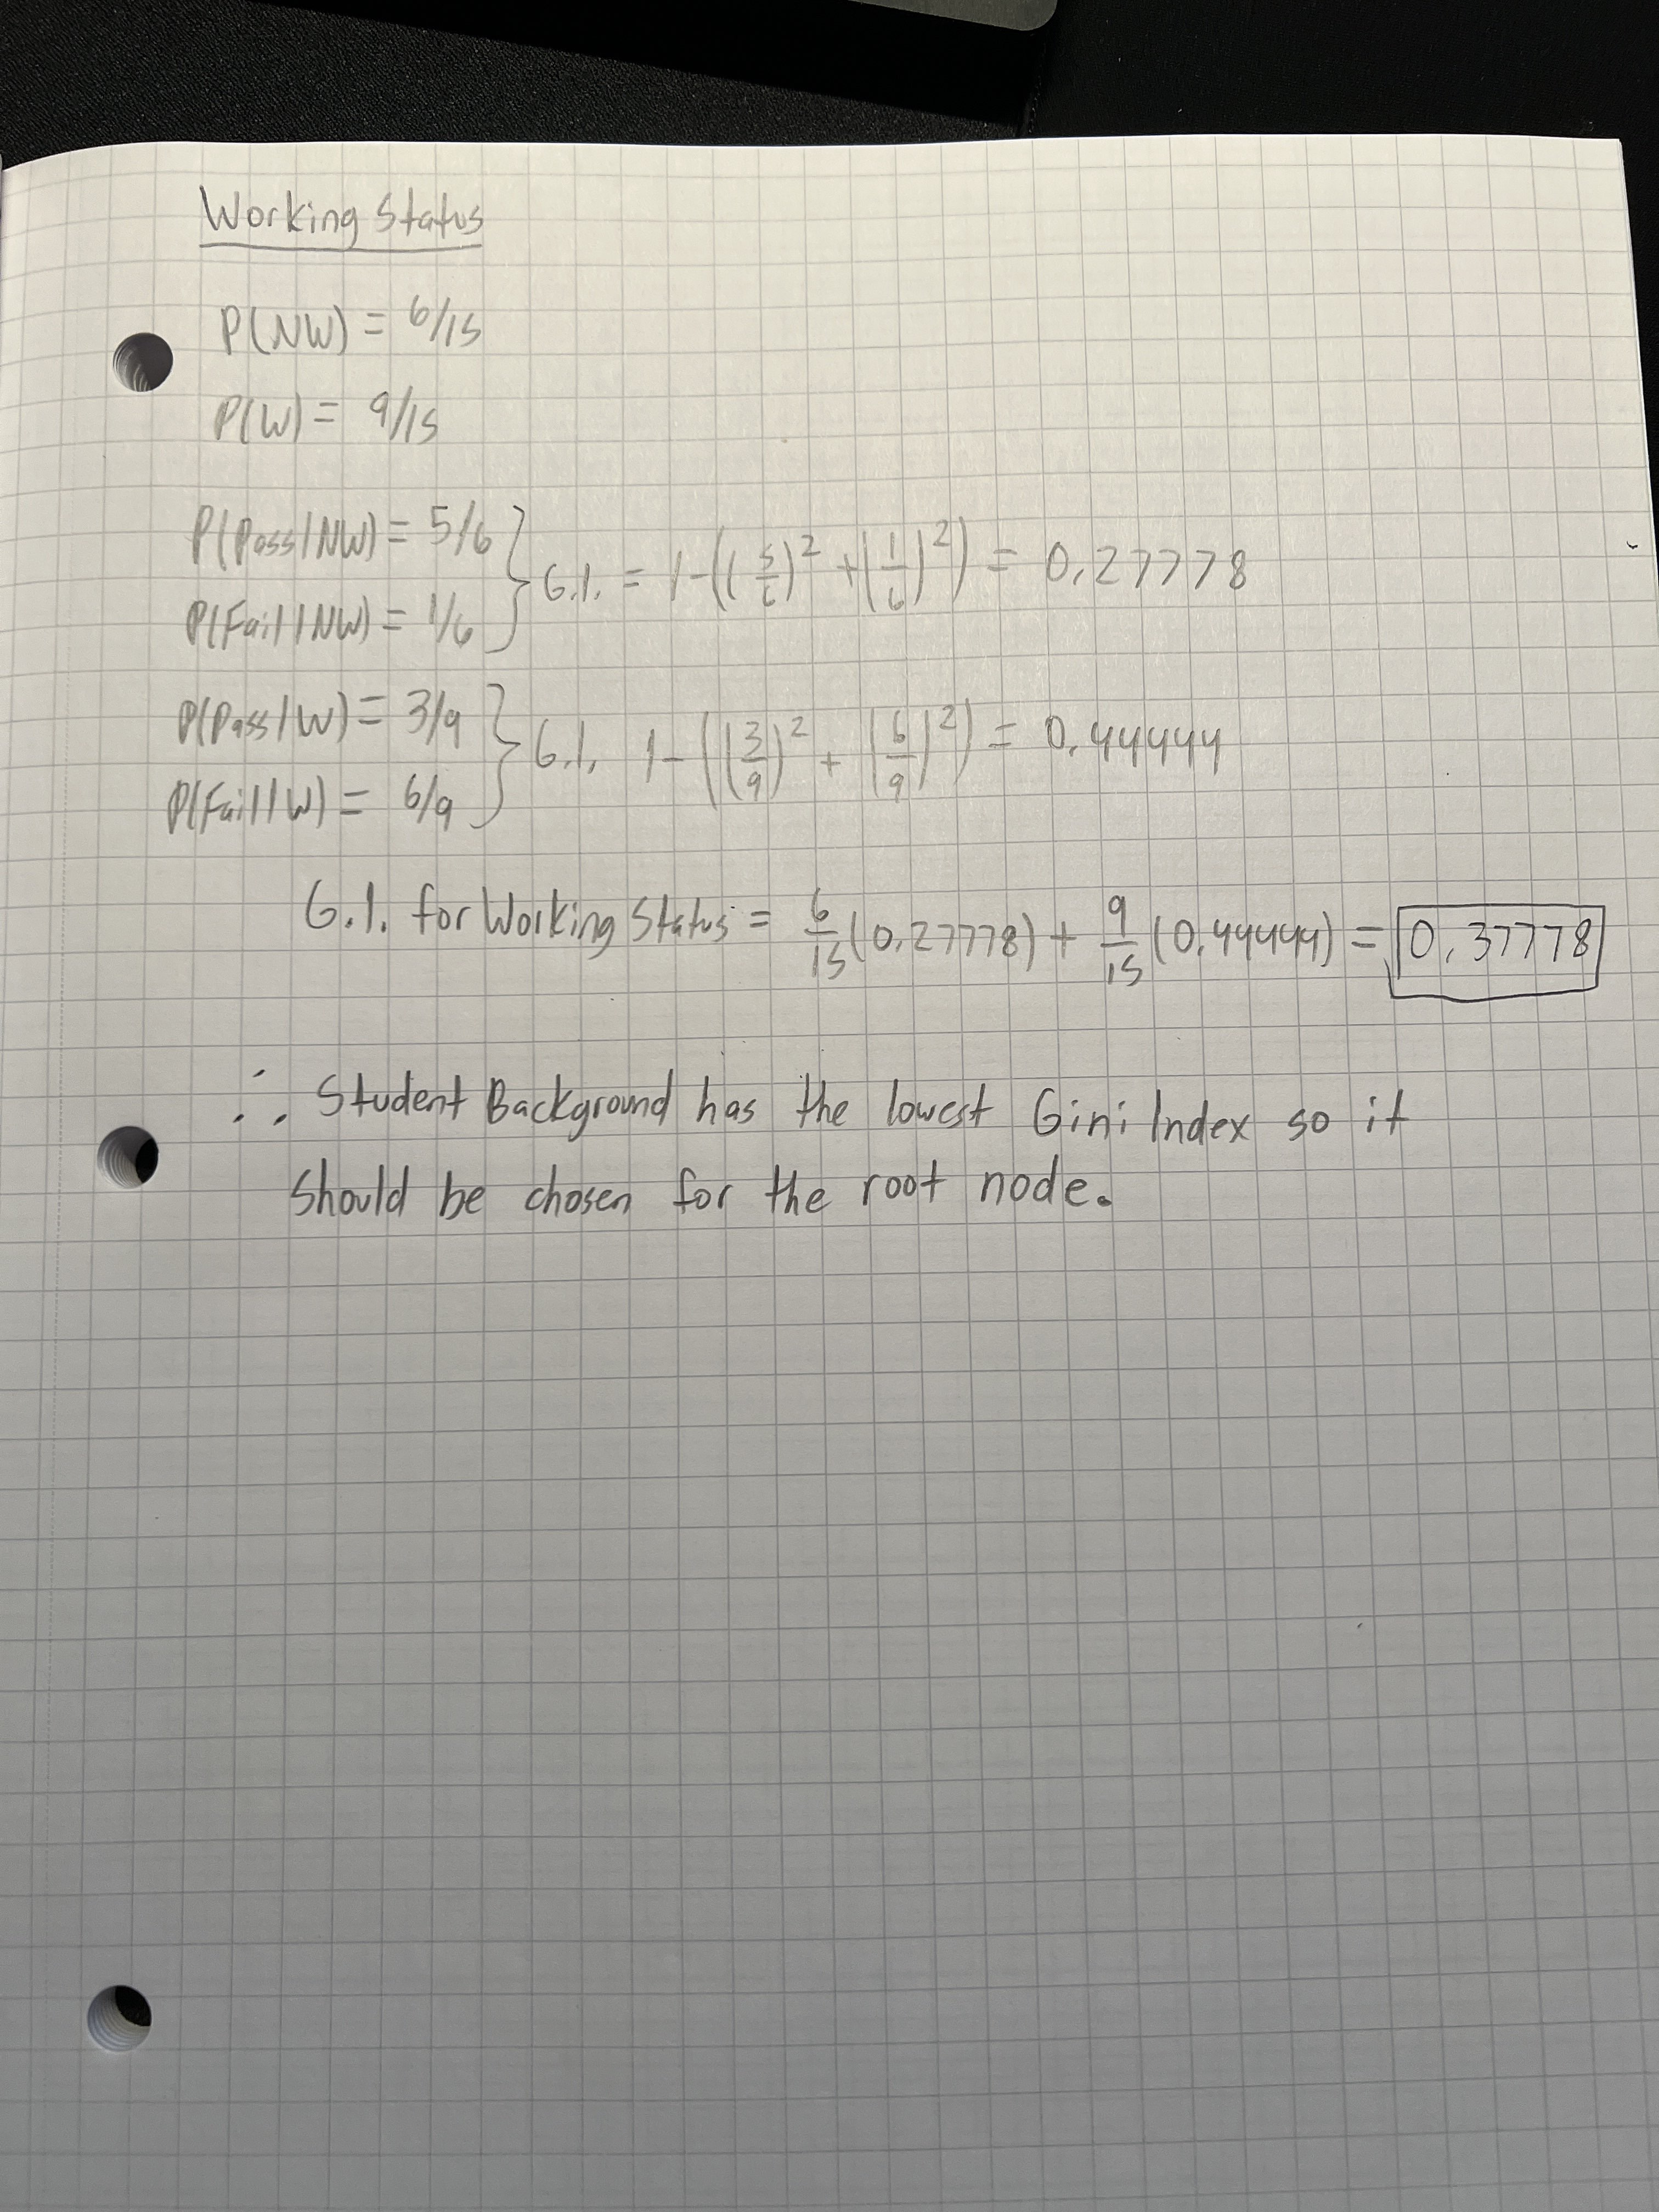 Working Status
P(NW) = 6/15
P(W) = 9/15
P(Pass|NW) = 5/6
P(Fail|NW) = 1/6
} G.I. = 1-((5/6)² + (1/6)²) = 0.27778
P(Pass|W) = 3/9
P(Fail|W) = 6/9
} G.I. 1-((3/9)² + (6/9)²) = 0.44444
G.I. for Working Status = 6/15 (0.27778) + 9/15 (0.44444) = 0.37778
∴ Student Background has the lowest Gini Index so it
should be chosen for the root node.